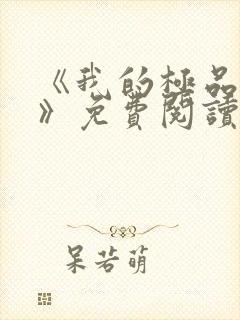 《我的極品
》免費閱讀
呆若萌